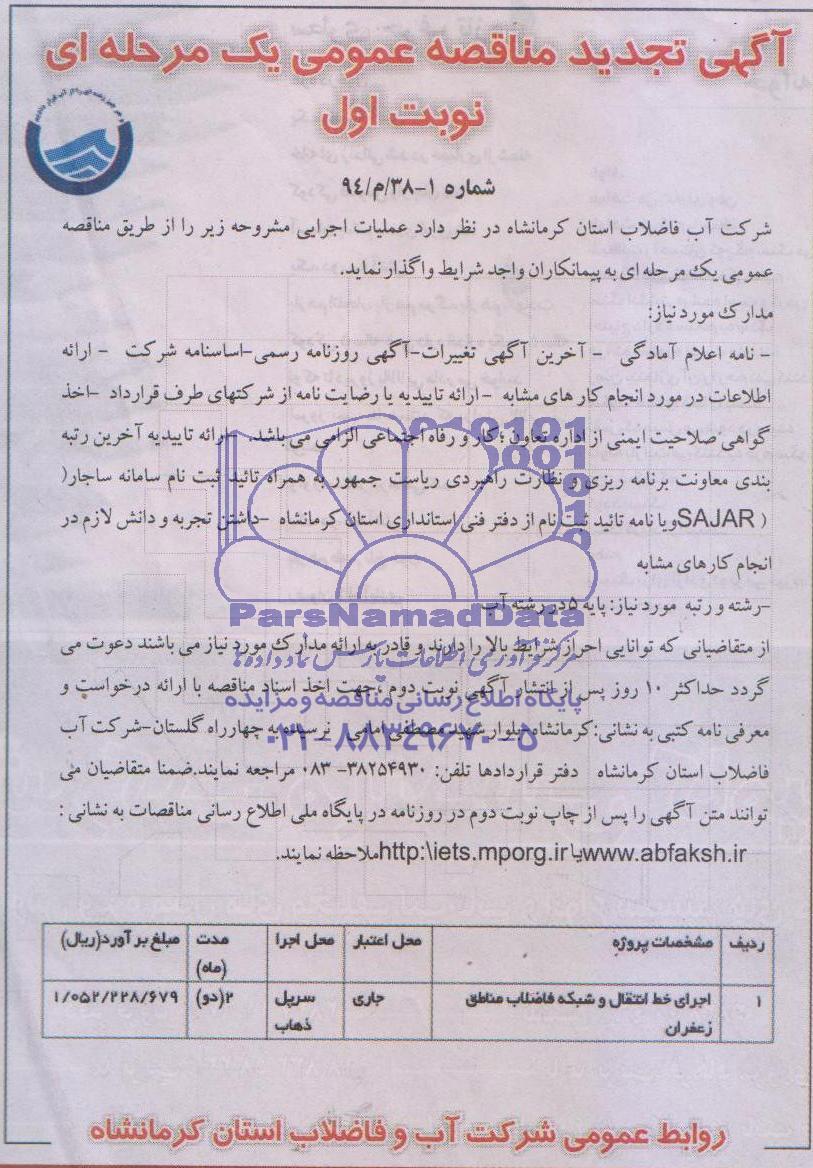 آگهی تجدید مناقصه عمومی یک مرحله ای
نوبت اول
شماره ۱-۳۸/م/۹۴
شرکت آب فاضلاب استان کرمانشاه در نظر دارد عملیات اجرایی مشروحه زیر را از طریق مناقصه
عمومی یک مرحله ای به پیمانکاران واجد شرایط واگذار نماید.
مدارک مورد نیاز:
- نامه اعلام آمادگی - آخرین آگهی تغییرات-آگهی روزنامه رسمی-اساسنامه شرکت - ارائه
اطلاعات در مورد انجام کار های مشابه -ارائه تاییدیه یا رضایت نامه از شرکتهای طرف قرارداد -اخذ
گواهی صلاحیت ایمنی از اداره تعاون ؛ کار و رفاه اجتماعی الزامی می باشد. -ارائه تاییدیه آخرین رتبه
بندی معاونت برنامه ریزی و نظارت راهبردی ریاست جمهور به همراه تائید ثبت نام سامانه ساجار(
SAJAR) ویا نامه تائید ثبت نام از دفتر فنی استانداری استان کرمانشاه -داشتن تجربه و دانش لازم در
انجام کارهای مشابه
-رشته و رتبه مورد نیاز: پایه ۵ در رشته آب
از متقاضیانی که توانایی احراز شرایط بالا را دارند و قادر به ارائه مدارک مورد نیاز می باشند دعوت می
گردد حداکثر ۱۰ روز پس از انتشار آگهی نوبت دوم ،جهت اخذ اسناد مناقصه با ارائه درخواست و
معرفی نامه کتبی به نشانی:کرمانشاه بلوار شهید مصطفی امامی نرسیده به چهارراه گلستان-شرکت آب
فاضلاب استان کرمانشاه دفتر قراردادها تلفن: ۳۸۲۵۴۹۳۰- ۰۸۳ مراجعه نمایند.ضمنا متقاضیان می
توانند متن آگهی را پس از چاپ نوبت دوم در روزنامه در پایگاه ملی اطلاع رسانی مناقصات به نشانی :
www.abfaksh.ir یا http:\iets.mporg.ir ملاحظه نمایند.
ParsNamadData
مرکز فرآوری اطلاعات پارس نماد داده ها
پایگاه اطلاع رسانی مناقصه و مزایده
۰۲۱-۸۸۳۴۹۶۷۰-۵
ردیف مشخصات پروژه محل اعتبار محل اجرا مدت (ماه) مبلغ برآورد(ریال)
۱ اجرای خط انتقال و شبکه فاضلاب مناطق زعفران جاری سرپل ذهاب ۲(دو) ۱/۰۵۲/۲۲۸/۶۷۹
روابط عمومی شرکت آب و فاضلاب استان کرمانشاه